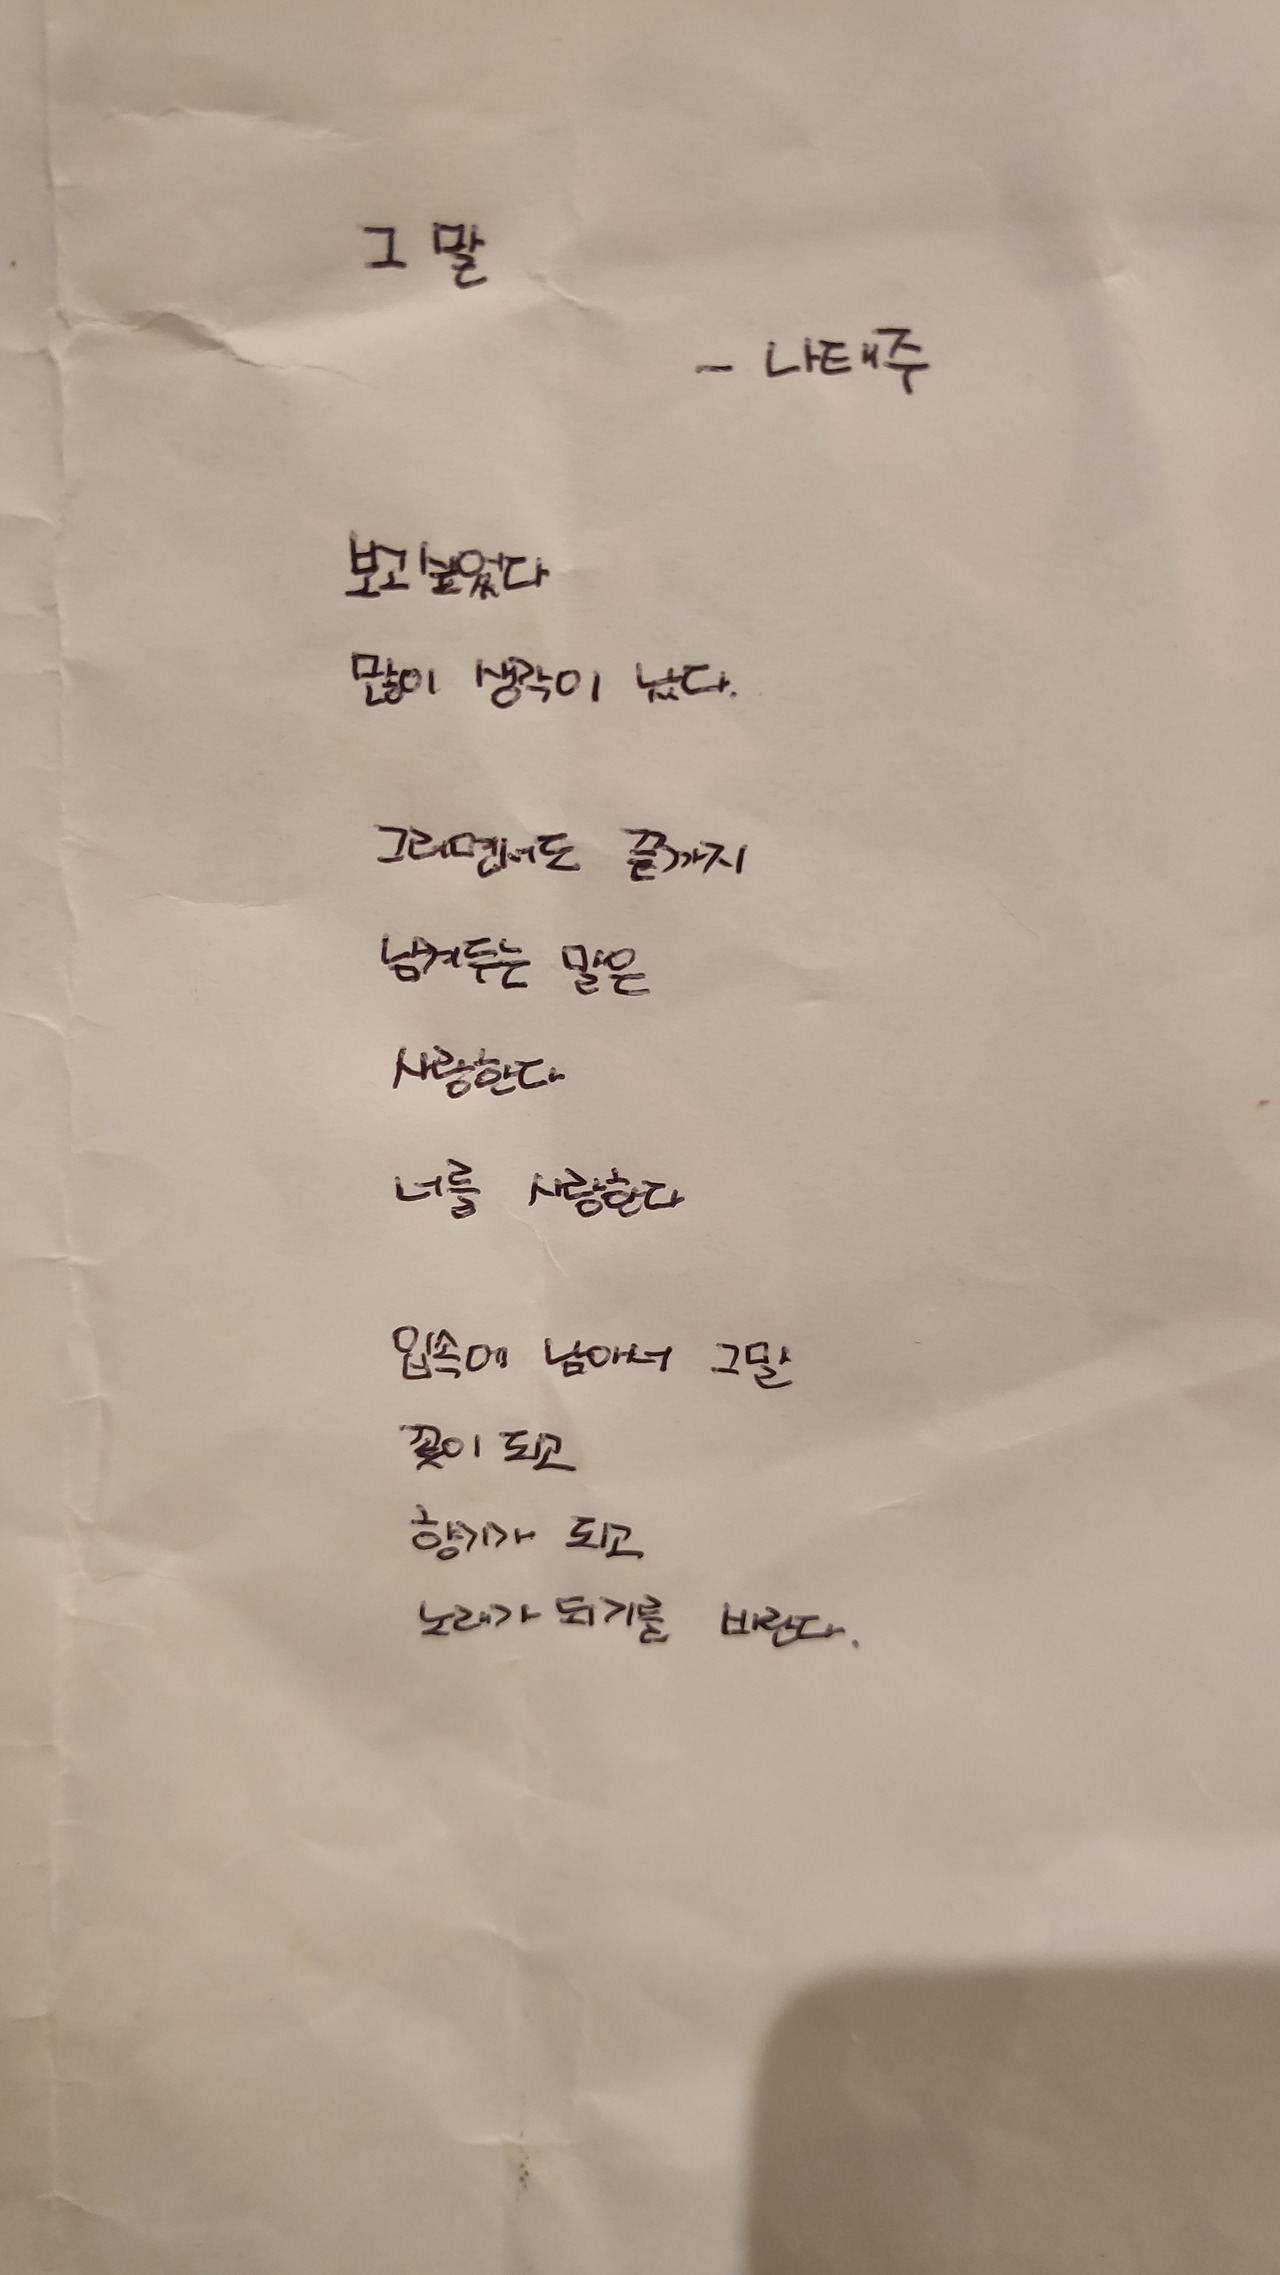 그 말
- 나태주
보고싶었다
많이 생각이 났다.
그러면서도 끝까지
남겨두는 말은
사랑한다
너를 사랑한다
입속에 남아서 그말
꽃이 되고
향기가 되고
노래가 되기를 바란다.